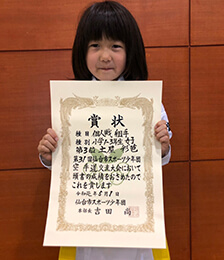 賞状
種目 個人戦 組手
種別 小学1・2年生女子
第3位 土屋 彩色
第31回仙台市スポーツ少年団
空手道交流大会において
頭書の成績をおさめたので
これを賞します
令和元年5月1日
仙台市スポーツ少年団
本部長 吉田 尚